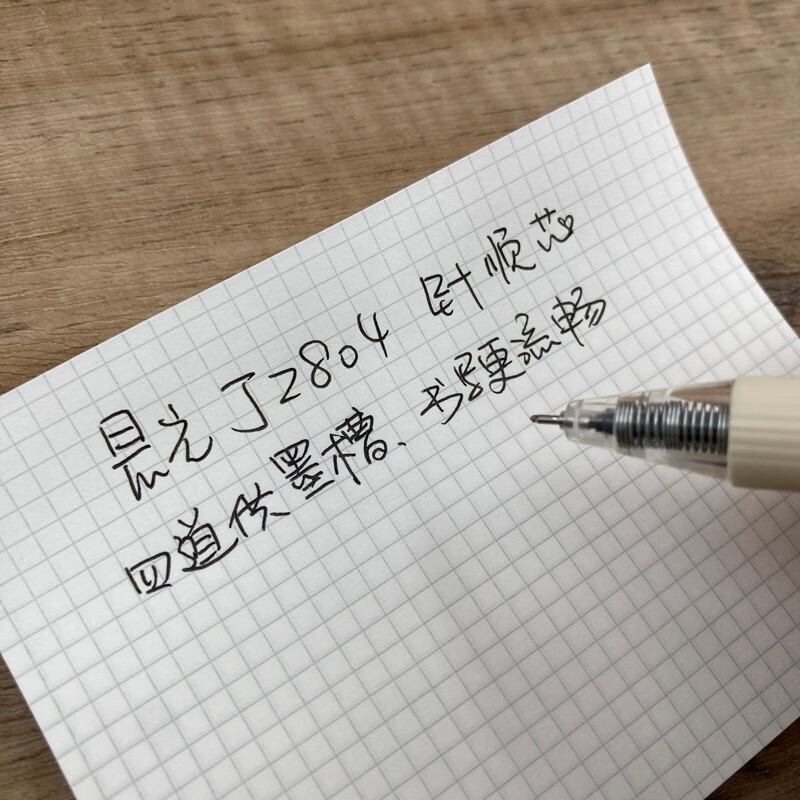 晨光 J2804 针顺芯
四道供墨槽、书硬流畅